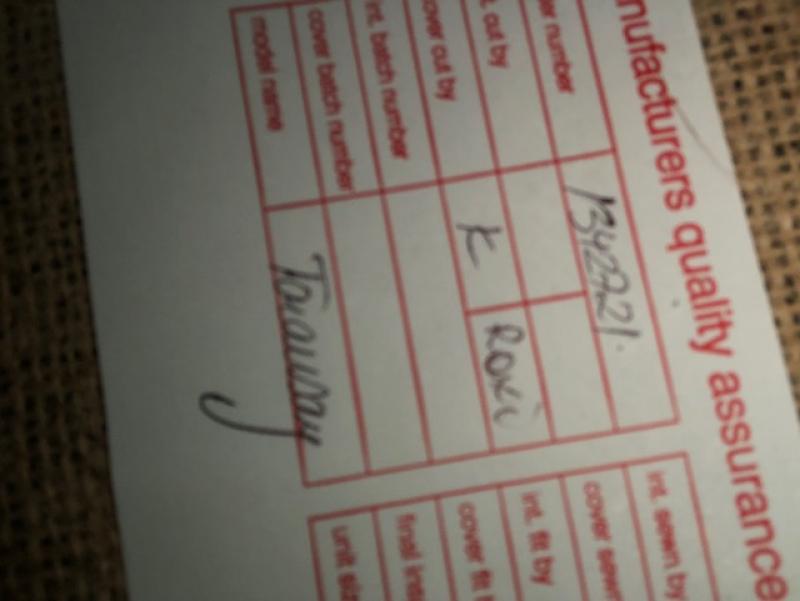 nufacturers quality assurance
er number 1342721.
t. cut by
over cut by K Roxi
int. batch number
cover batch number
model name
int. sewn by
cover sewn
int. fit by
cover fit
final ins
unit siz